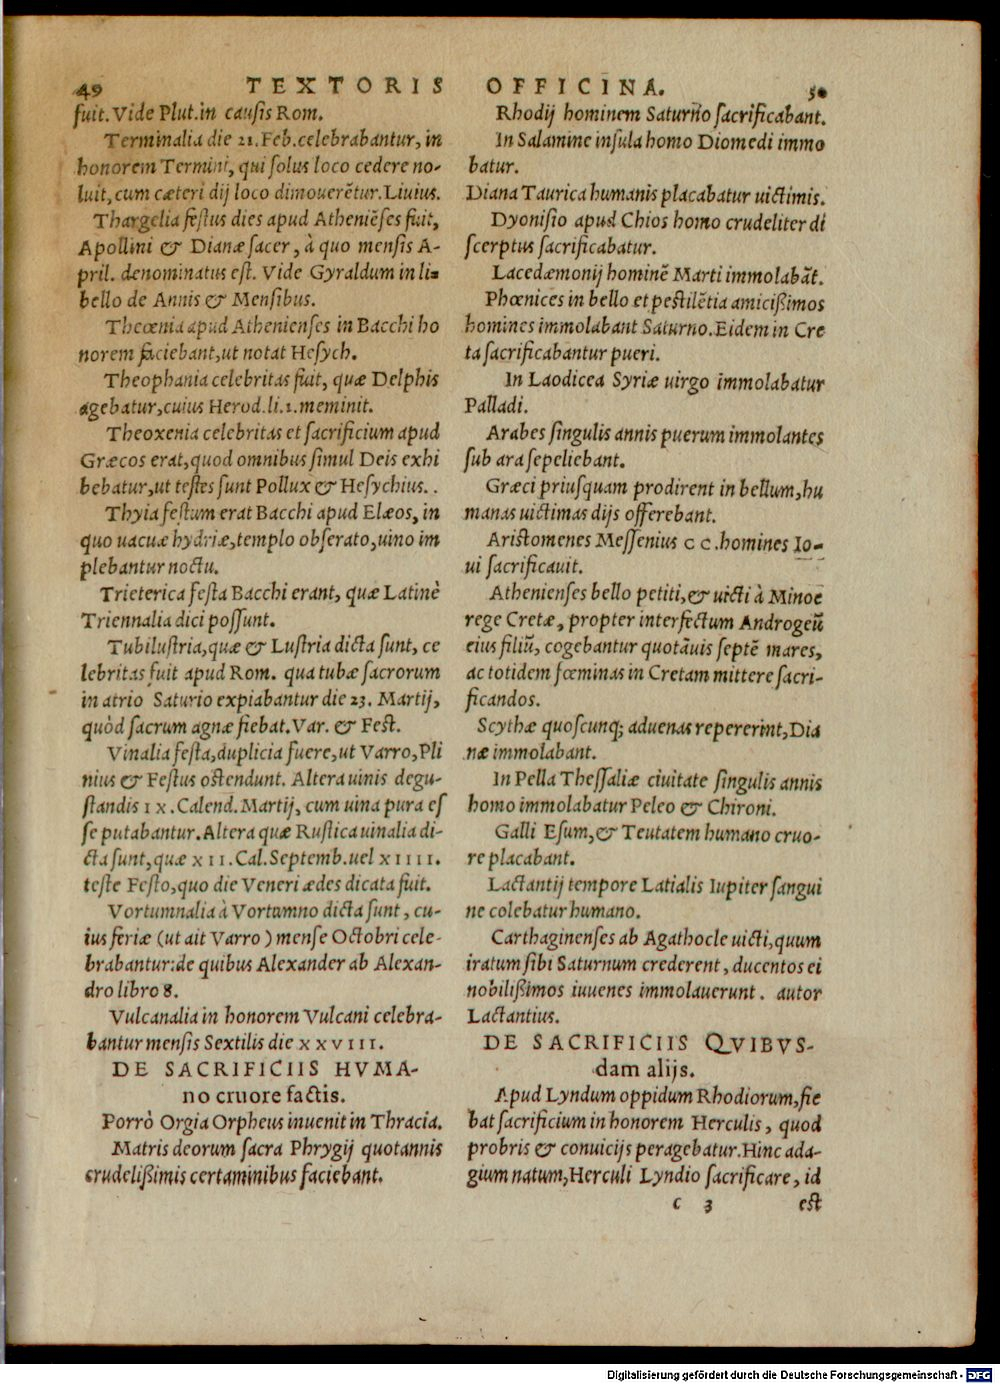 49 TEXTORIS OFFICINA. 50
fuit. Vide Plut. in causis Rom.
Terminalia die 21. Feb. celebrabantur, in
honorem Termini, qui solus loco cedere no-
luit, cum cæteri dij loco dimouerētur. Liuius.
Thargelia festus dies apud Atheniēses fuit,
Apollini & Dianæ sacer, à quo mensis A-
pril. denominatus est. Vide Gyraldum in li-
bello de Annis & Mensibus.
Theœnia apud Athenienses in Bacchi ho
norem faciebant, ut notat Hesych.
Theophania celebritas fuit, quæ Delphis
agebatur, cuius Herod. li. 1. meminit.
Theoxenia celebritas et sacrificium apud
Græcos erat, quod omnibus simul Deis exhi
bebatur, ut testes sunt Pollux & Hesychius. .
Thyia festum erat Bacchi apud Elæos, in
quo uacuæ hydriæ, templo obserato, uino im
plebantur noctu.
Trieterica festa Bacchi erant, quæ Latinè
Triennalia dici possunt.
Tubilustria, quæ & Lustria dicta sunt, ce
lebritas fuit apud Rom. qua tubæ sacrorum
in atrio Saturio expiabantur die 23. Martij,
quòd sacrum agnæ fiebat. Var. & Fest.
Vinalia festa, duplicia fuere, ut Varro, Pli
nius & Festus ostendunt. Altera uinis degu-
standis IX. Calend. Martij, cum uina pura es
se putabantur. Altera quæ Rustica uinalia di-
cta sunt, quæ XII. Cal. Septemb. uel XIIII.
teste Festo, quo die Veneri ædes dicata fuit.
Vortumnalia à Vortumno dicta sunt, cu-
ius feriæ (ut ait Varro) mense Octobri cele-
brabantur: de quibus Alexander ab Alexan-
dro libro 8.
Vulcanalia in honorem Vulcani celebra-
bantur mensis Sextilis die XXVIII.
DE SACRIFICIIS HVMA-
no cruore factis.
Porrò Orgia Orpheus inuenit in Thracia.
Matris deorum sacra Phrygij quotannis
crudelißimis certaminibus faciebant.
Rhodij hominem Saturno sacrificabant.
In Salamine insula homo Diomedi immo
batur.
Diana Taurica humanis placabatur uictimis.
Dyonisio apud Chios homo crudeliter di
scerptus sacrificabatur.
Lacedæmonij hominē Marti immolabāt.
Phœnices in bello et pestilētia amicißimos
homines immolabant Saturno. Eidem in Cre
ta sacrificabantur pueri.
In Laodicea Syriæ uirgo immolabatur
Palladi.
Arabes singulis annis puerum immolantes
sub ara sepeliebant.
Græci priusquam prodirent in bellum, hu
manas uictimas dijs offerebant.
Aristomenes Messenius CC. homines Io-
ui sacrificauit.
Athenienses bello petiti, & uicti à Minoe
rege Cretæ, propter interfectum Androgeū
eius filiū, cogebantur quotāuis septē mares,
ac totidem fœminas in Cretam mittere sacri-
ficandos.
Scythæ quoscunq; aduenas repererint, Dia
næ immolabant.
In Pella Thessaliæ ciuitate singulis annis
homo immolabatur Peleo & Chironi.
Galli Esum, & Teutatem humano cruo-
re placabant.
Lactantij tempore Latialis Iupiter sangui
ne colebatur humano.
Carthaginenses ab Agathocle uicti, quum
iratum sibi Saturnum crederent, ducentos ei
nobilißimos iuuenes immolauerunt. autor
Lactantius.
DE SACRIFICIIS QVIBVS-
dam alijs.
Apud Lyndum oppidum Rhodiorum, fie
bat sacrificium in honorem Herculis, quod
probris & conuicijs peragebatur. Hinc ada-
gium natum, Herculi Lyndio sacrificare, id
c 3 est
Digitalisierung gefördert durch die Deutsche Forschungsgemeinschaft - DFG